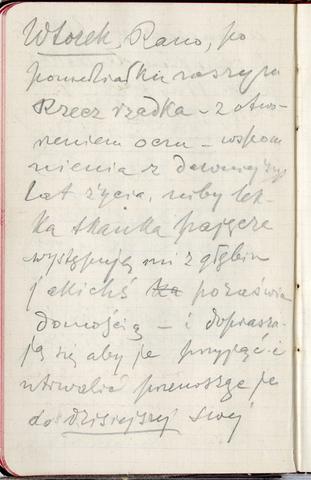 Wtorek, Rano, po
poniedziałku naszym
Rzecz rzadka – z otwo-
rzeniem oczu – wspom
nienia z dawniejszych
lat życia, niby lek-
ka tkanka pajęcza
występują mi z głębin
jakichś poza świa
domością – i doprasza-
ją się aby je przyjąć i
utrwalić przenosząc je
do dzisiejszej swej